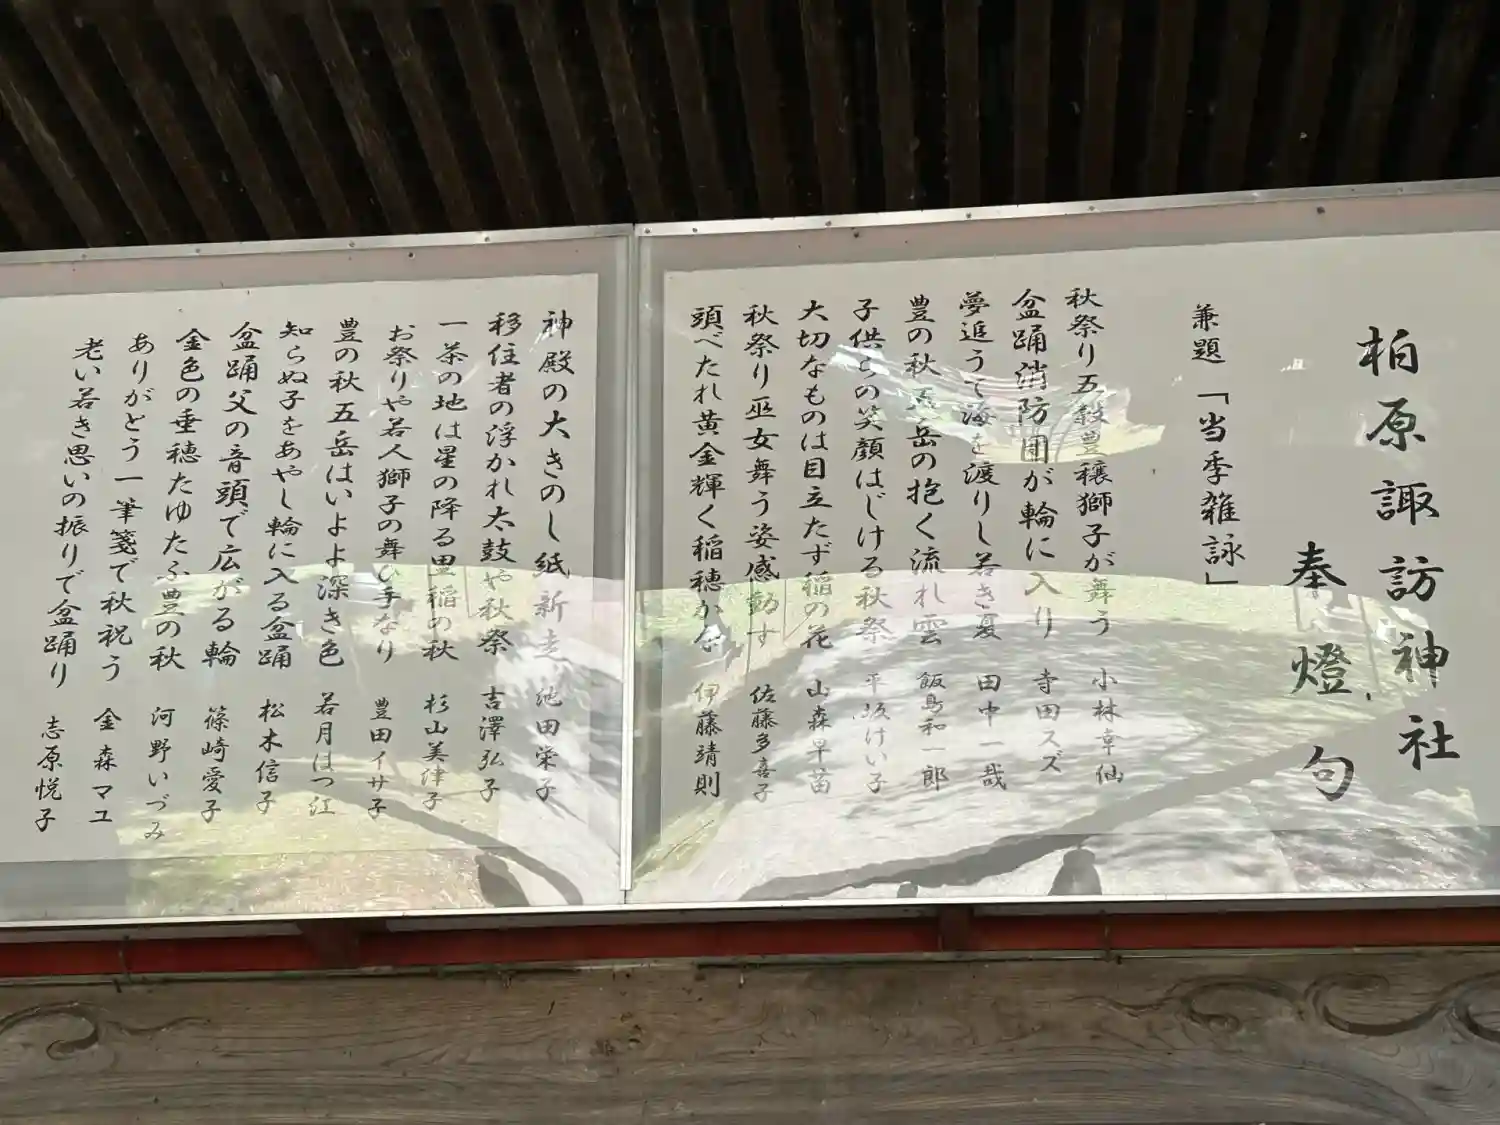 柏原諏訪神社
奉燈句
兼題「当季雑詠」
秋祭り五穀豊穣獅子が舞う 小林幸仙
盆踊消防団が輪に入り 寺田スズ
夢追うて海を渡りし若き夏 田中一哉
豊の秋五岳の抱く流れ雲 飯島和一郎
子供らの笑顔はじける秋祭 平坂けい子
大切なものは目立たず稲の花 山森早苗
秋祭り巫女舞う姿感動す 佐藤多喜子
頭べたれ黄金輝く稲穂かな 伊藤靖則
神殿の大きのし紙新走 池田栄子
移住者の浮かれ太鼓や秋祭 吉澤弘子
一茶の地は星の降る里稲の秋 杉山美津子
お祭りや若人獅子の舞ひ手なり 豊田イサ子
豊の秋五岳はいよよ深き色 若月はつ江
知らぬ子をあやし輪に入る盆踊 松木信子
盆踊父の音頭で広がる輪 篠崎愛子
金色の垂穂たゆたふ豊の秋 河野いづみ
ありがとう一筆箋で秋祝う 金森マユ
老い若き思いの振りで盆踊り 志原悦子